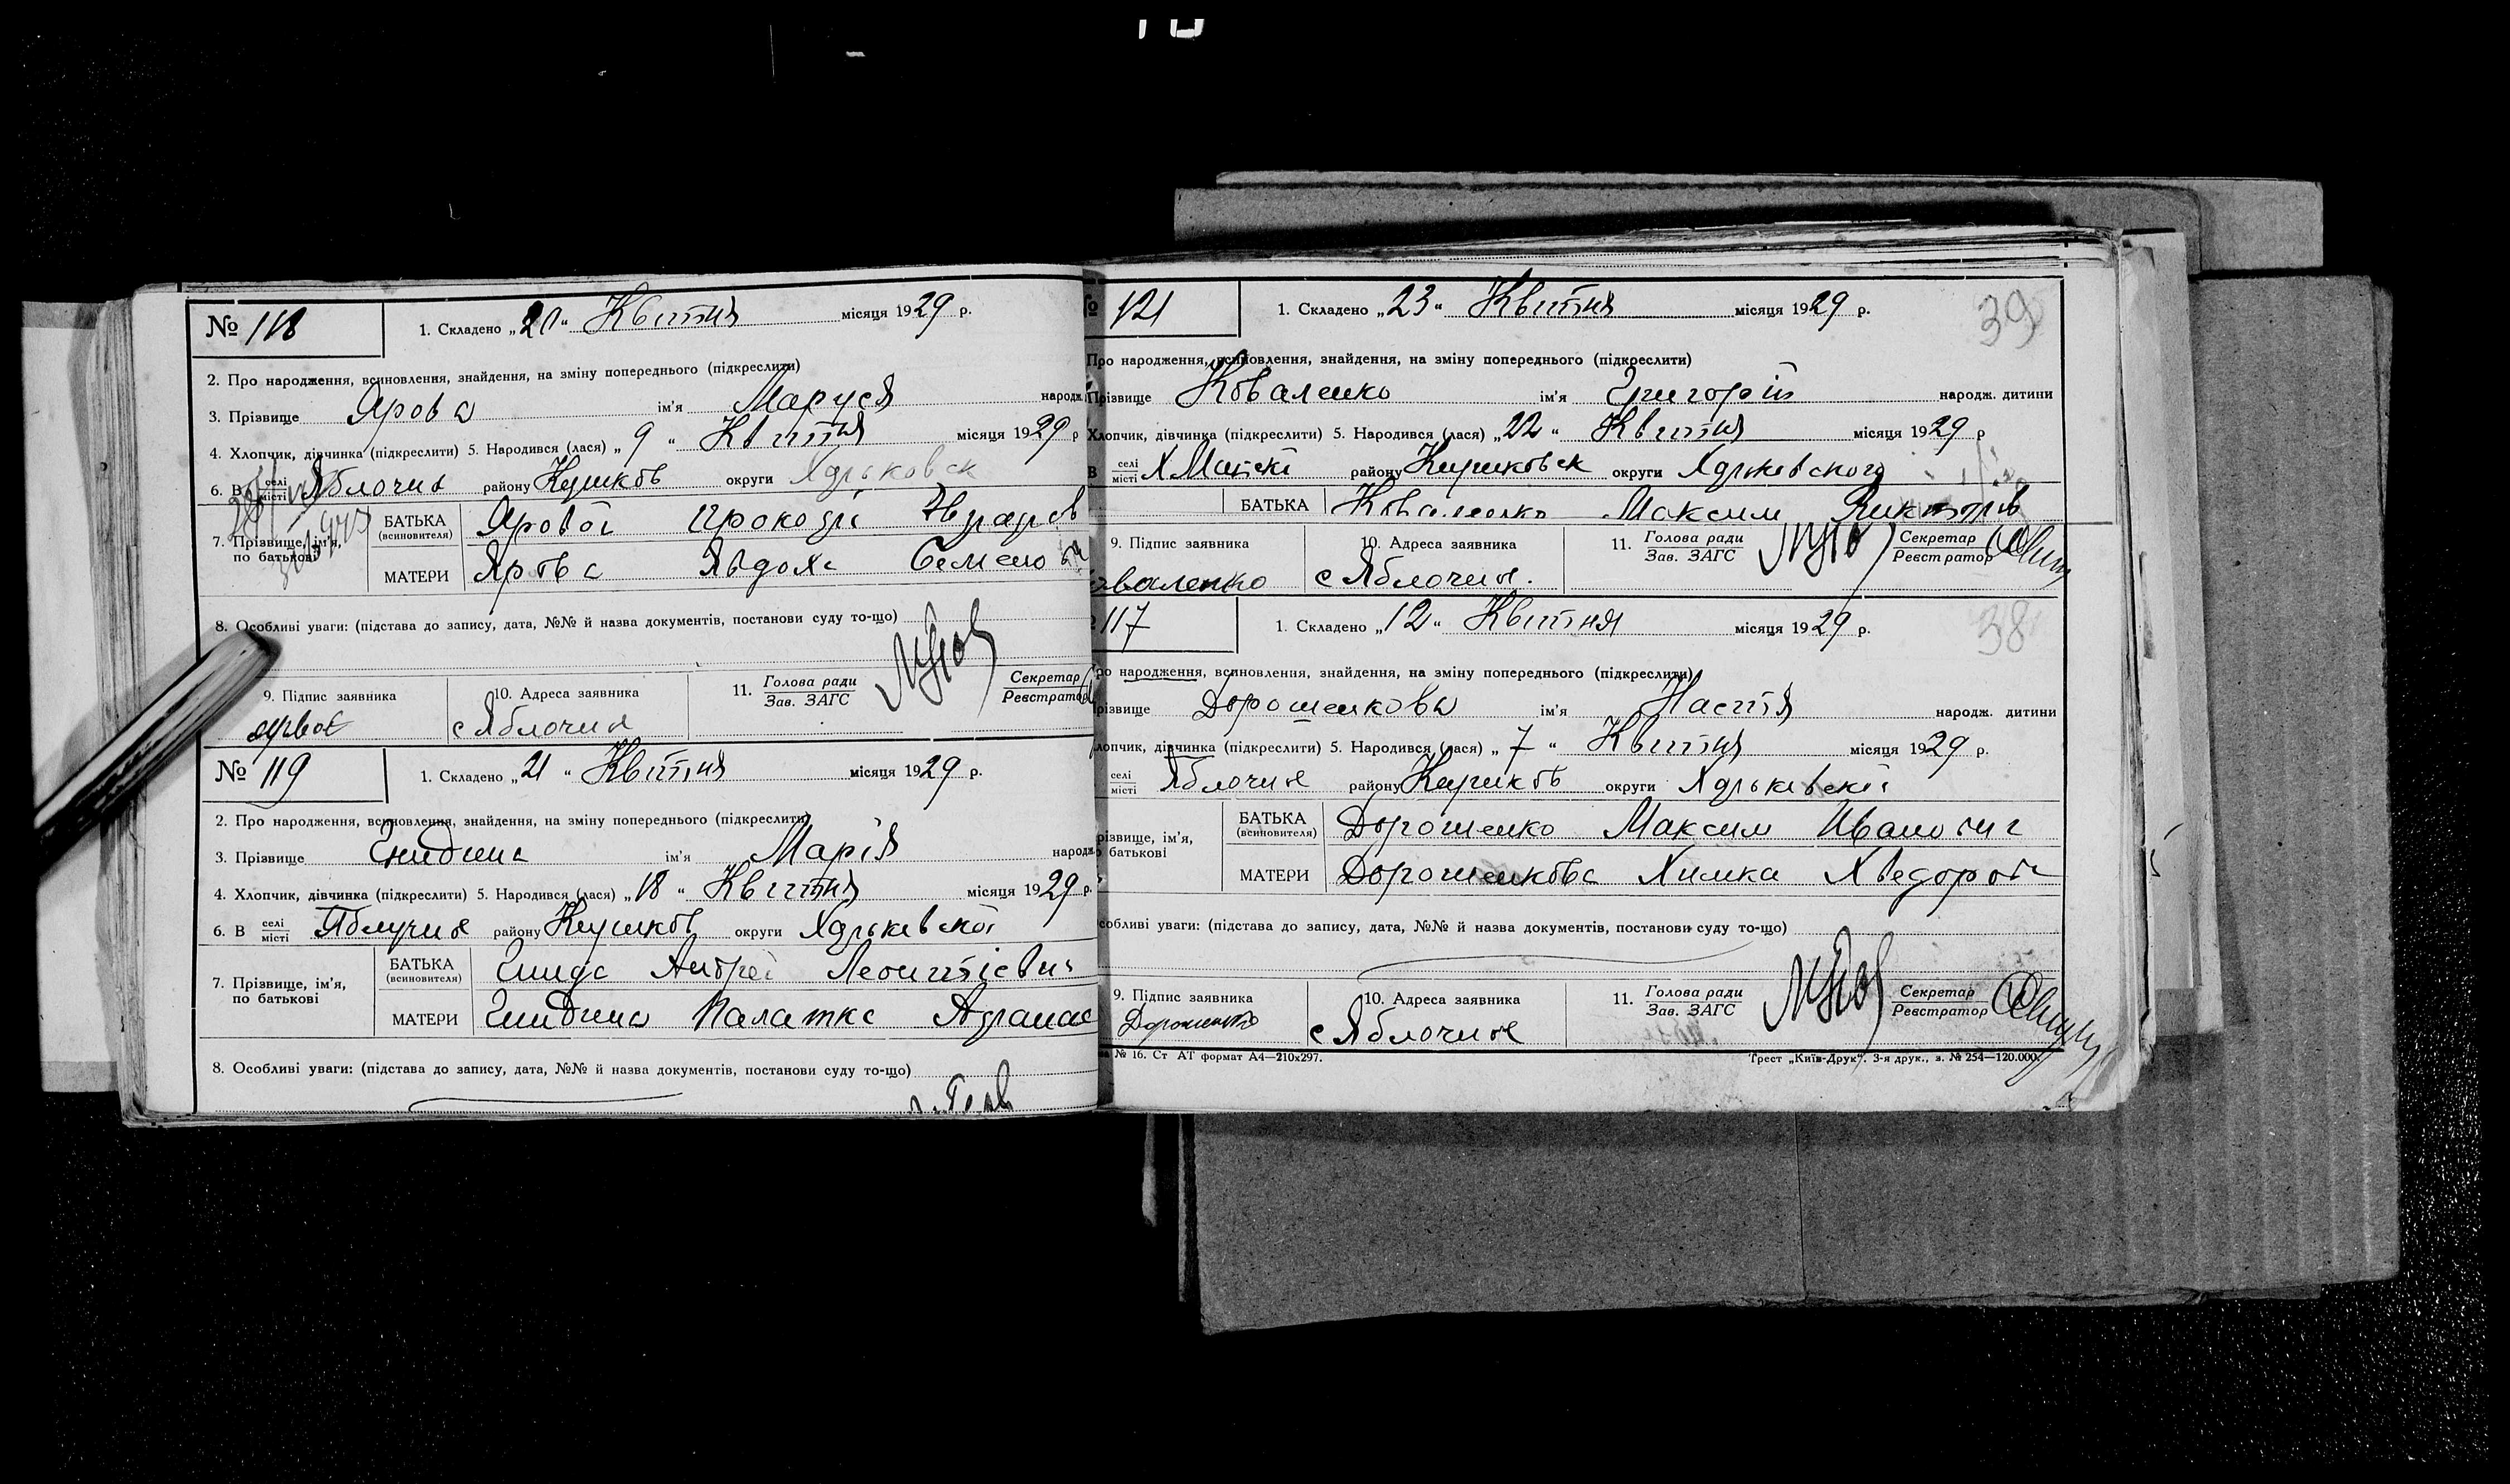 № 118
1. Складено „20“ Квітня місяця 1929 р.
2. Про народження, всиновлення, знайдення, на зміну попереднього (підкреслити)
3. Прізвище Ярова ім'я Маруся народж
4. Хлопчик, дівчинка (підкреслити) 5. Народився (лася) „9“ Квітня місяця 1929 р
6. В селі місті Яблочна району Куриков округи Харьковск
7. Прізвище, ім'я, по батькові
БАТЬКА (всиновителя) Яровоі
МАТЕРИ Ярова Явдоха Семенов
8. Особливі уваги: (підстава до запису, дата, №№ й назва документів, постанови суду то-що)
9. Підпис заявника
10. Адреса заявника с Яблочна
11. Голова ради Зав. ЗАГС
Секретар Реєстратор
№ 119
1. Складено „21“ Квітня місяця 1929 р.
2. Про народження, всиновлення, знайдення, на зміну попереднього (підкреслити)
3. Прізвище ім'я Марія народж
4. Хлопчик, дівчинка (підкреслити) 5. Народився (лася) „18“ Квітня місяця 1929 р.
6. В селі місті району округи Харьківскоі
7. Прізвище, ім'я, по батькові
БАТЬКА (всиновителя) Гнида Андреі Леонтієвич
МАТЕРИ Палажка
8. Особливі уваги: (підстава до запису, дата, №№ й назва документів, постанови суду то-що)
№ 121
39
1. Складено „23“ Квітня місяця 1929 р.
Про народження, всиновлення, знайдення, на зміну попереднього (підкреслити)
Прізвище Коваленко ім'я Григорій народж. дитини
Хлопчик, дівчинка (підкреслити) 5. Народився (лася) „22“ Квітня місяця 1929 р
В селі місті району округи Харьківского
БАТЬКА Коваленко Максим
9. Підпис заявника Коваленко
10. Адреса заявника с Яблочна.
11. Голова ради Зав. ЗАГС
Секретар Реєстратор
117
38
1. Складено „12“ Квітня місяця 1929 р.
Про народження, всиновлення, знайдення, на зміну попереднього (підкреслити)
Прізвище Дорошенкова ім'я Настя народж. дитини
Хлопчик, дівчинка (підкреслити) 5. Народився (лася) „7“ Квітня місяця 1929 р.
селі місті Яблочна району Куриков округи Харьківскоі
Прізвище, ім'я, по батькові
БАТЬКА (всиновителя) Дорошенко Максим Иванович
МАТЕРИ Дорошенкова Химка Хведоров
Особливі уваги: (підстава до запису, дата, №№ й назва документів, постанови суду то-що)
9. Підпис заявника Дорошенко
10. Адреса заявника с Яблочна
11. Голова ради Зав. ЗАГС
Секретар Реєстратор
№ 16. Ст АТ формат А4—210х297.
Трест „Київ-Друк“. 3-я друк., з. № 254—120.000.